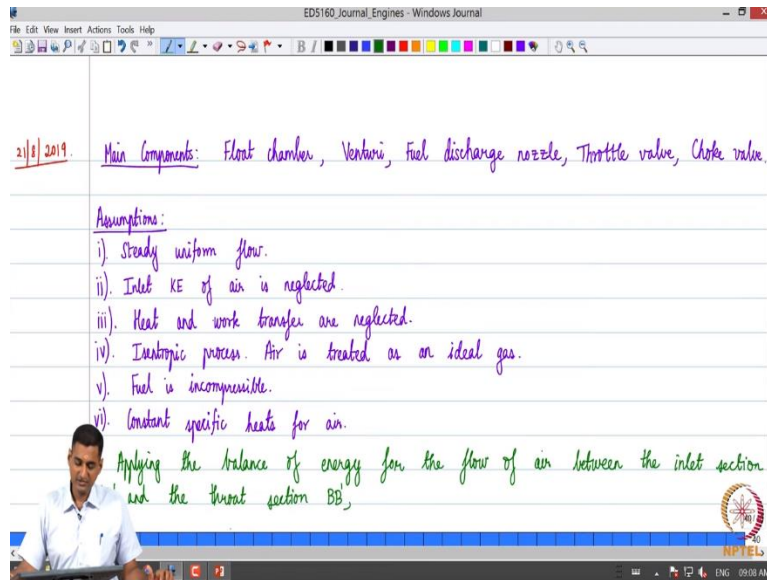 ED5160_Journal_Engines - Windows Journal
File Edit View Insert Actions Tools Help
21/8/2019.
Main Components: Float chamber, Venturi, Fuel discharge nozzle, Throttle valve, Choke valve.
Assumptions:
i). Steady uniform flow.
ii). Inlet KE of air is neglected.
iii). Heat and work transfer are neglected.
iv). Isentropic process. Air is treated as an ideal gas.
v). Fuel is incompressible.
vi). Constant specific heats for air.
Applying the balance of energy for the flow of air between the inlet section
and the throat section BB',
40
NPTEL
ENG 09:08 AM